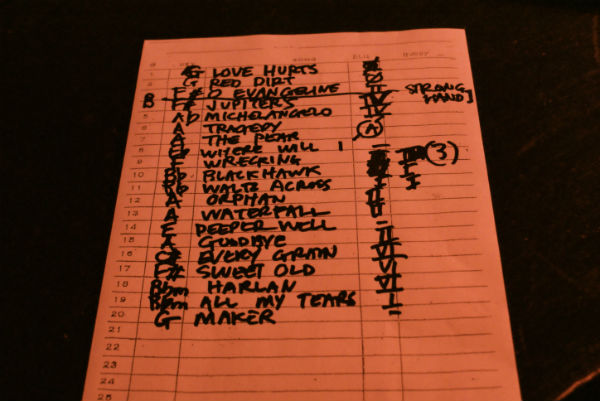 G LOVE HURTS
1 G RED DIRT
2 E O EVANGELINE STRONG
B F# JUPITERS HAND]
5 Ab MICHELANGELO
6 A TRAGEDY A
7 A THE PEAR
8 WHERE WILL I (3)
9 E WRECKING
10 Bb BLACKHAWK
11 Bb WALTZ ACROSS
12 A ORPHAN
13 A WATERFALL
14 E DEEPER WELL
15 A GOODBYE
16 EVERY GRAIN
17 F# SWEET OLD
18 Bbm HARLAN
19 Bbm ALL MY TEARS
20 G MAKER
21
22
23
24
25